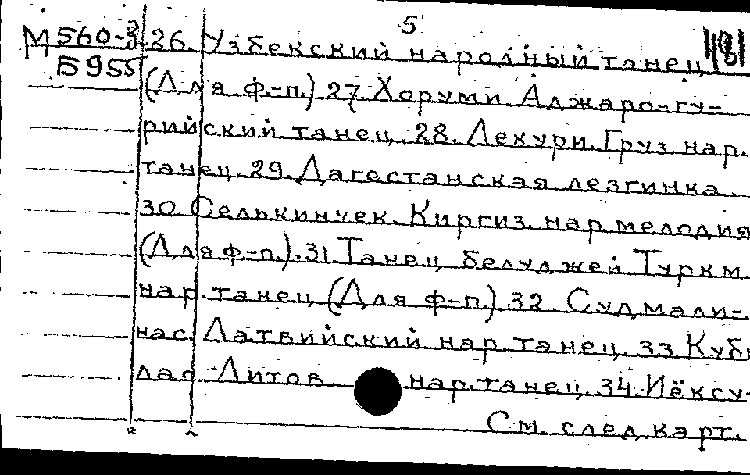 5
М 560-3 26. Узбекский народный танец
Б955 (Для ф-п.) 27. Хоруми. Аджаро-гу-
рийский танец. 28. Лекури. Груз. нар.
танец. 29. Дагестанская лезгинка.
30. Селькинчек. Киргиз. нар. мелодия
(Для ф-п.). 31. Танец белуджей. Туркм.
нар. танец (Для ф-п.). 32. Судмали-
нас. Латвийский нар. танец. 33. Куби
лас. Литов нар. танец. 34. Йёксу-
См. след. карт.